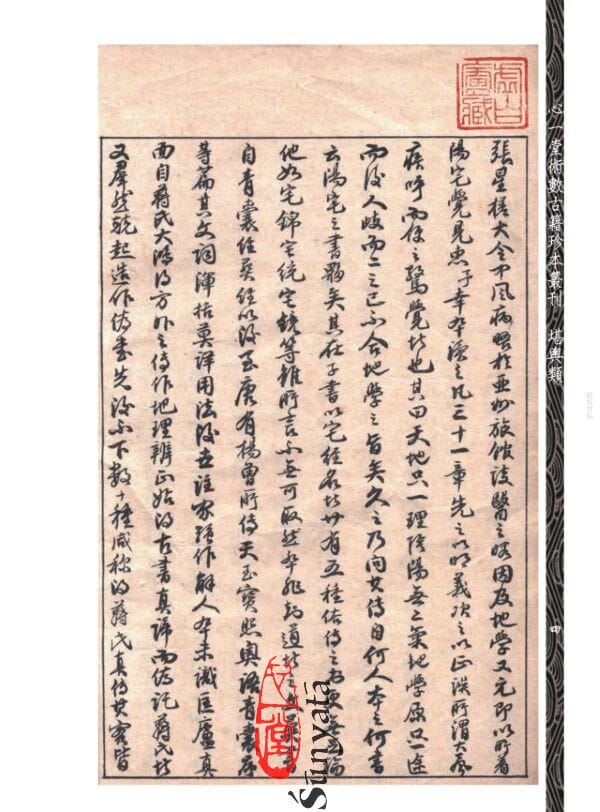 虛白廬藏
心一堂術數古籍珍本叢刊 堪輿類
四
張星槎大令中風病臥於亞州旅館談醫之暇因及地學又元即以所著
陽宅覺見忠予奉讀之凡三十一章先之以明義次之以正誤所謂大聲
疾呼而使之驚覺者也其曰天地只一理陰陽無二氣地學原只一途
而後人歧而二之已不合地學之旨矣久之乃問其傳自何人本之何書
云陽宅之書夥矣其在子書以宅經名者廿有五種佑傳之書更無論
他如宅錦宅統宅鏡等雖所言不無可取然本非知道者之
自青囊經葬經以後至唐有楊曾所傳天玉寶照奧語青囊序
等篇其文詞渾括莫詳用法後世註家強作解人本未識匡廬真
面自蔣氏大鴻得方外之傳作地理辨正始得古書真諦而偽託蔣氏者
又羣然競起造作偽書先後不下數十種咸稱得蔣氏真傳其實皆
心一堂
Śūnyatā